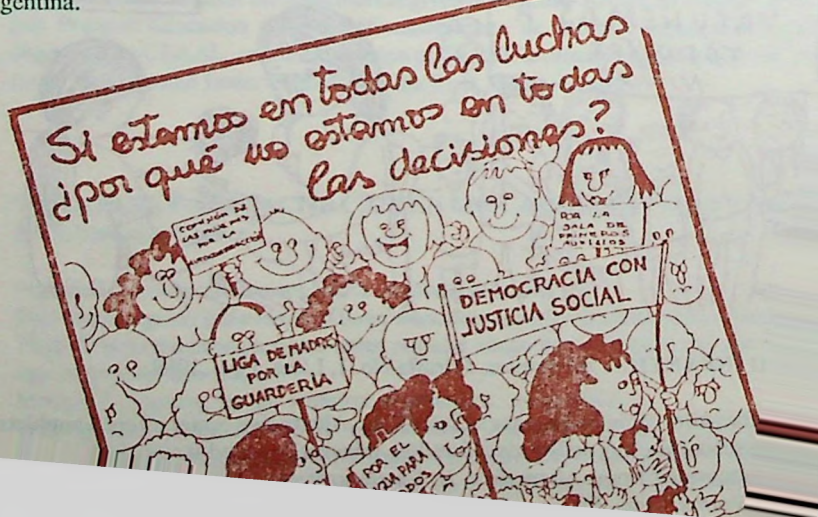 gentina.
Si estamos en todas las luchas
¿por qué no estamos en todas
las decisiones?
COMISIÓN DE
LAS
POR LA
POR LA
SALA DE
PRIMEROS
AUXILIOS
DEMOCRACIA CON
JUSTICIA SOCIAL
LIGA DE MADRES
POR LA
GUARDERÍA
POR EL
AGUA PARA
TODOS